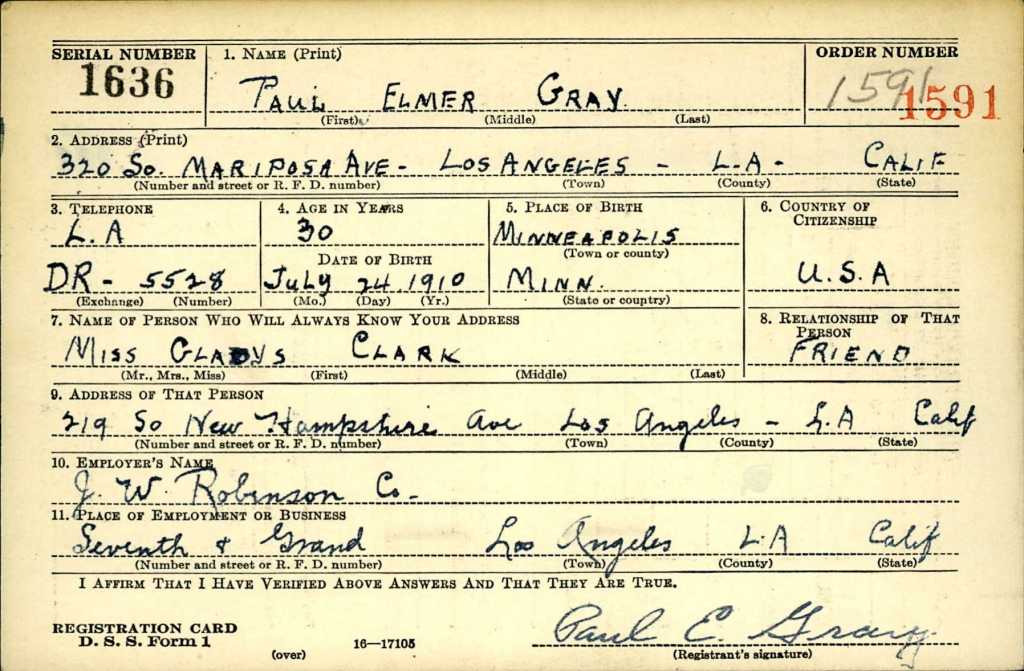 SERIAL NUMBER 1. NAME (Print) ORDER NUMBER
1636 PAUL ELMER GRAY 1591 1591
(First) (Middle) (Last)
2. ADDRESS (Print)
320 So. MARIPOSA AVE - LOS ANGELES - L.A - CALIF
(Number and street or R. F. D. number) (Town) (County) (State)
3. TELEPHONE 4. AGE IN YEARS 5. PLACE OF BIRTH 6. COUNTRY OF CITIZENSHIP
L.A 30 MINNEAPOLIS
DATE OF BIRTH (Town or county)
DR - 5528 July 24 1910 MINN. U.S.A
(Exchange) (Number) (Mo.) (Day) (Yr.) (State or country)
7. NAME OF PERSON WHO WILL ALWAYS KNOW YOUR ADDRESS 8. RELATIONSHIP OF THAT PERSON
MISS GLADYS CLARK FRIEND
(Mr., Mrs., Miss) (First) (Middle) (Last)
9. ADDRESS OF THAT PERSON
219 So New Hampshire Ave Los Angeles - L.A Calif
(Number and street or R. F. D. number) (Town) (County) (State)
10. EMPLOYER'S NAME
J. W. Robinson Co-
11. PLACE OF EMPLOYMENT OR BUSINESS
Seventh & Grand Los Angeles L.A Calif
(Number and street or R. F. D. number) (Town) (County) (State)
I AFFIRM THAT I HAVE VERIFIED ABOVE ANSWERS AND THAT THEY ARE TRUE.
REGISTRATION CARD
D. S. S. Form 1 Paul E. Gray
(over) 16—17105 (Registrant's signature)